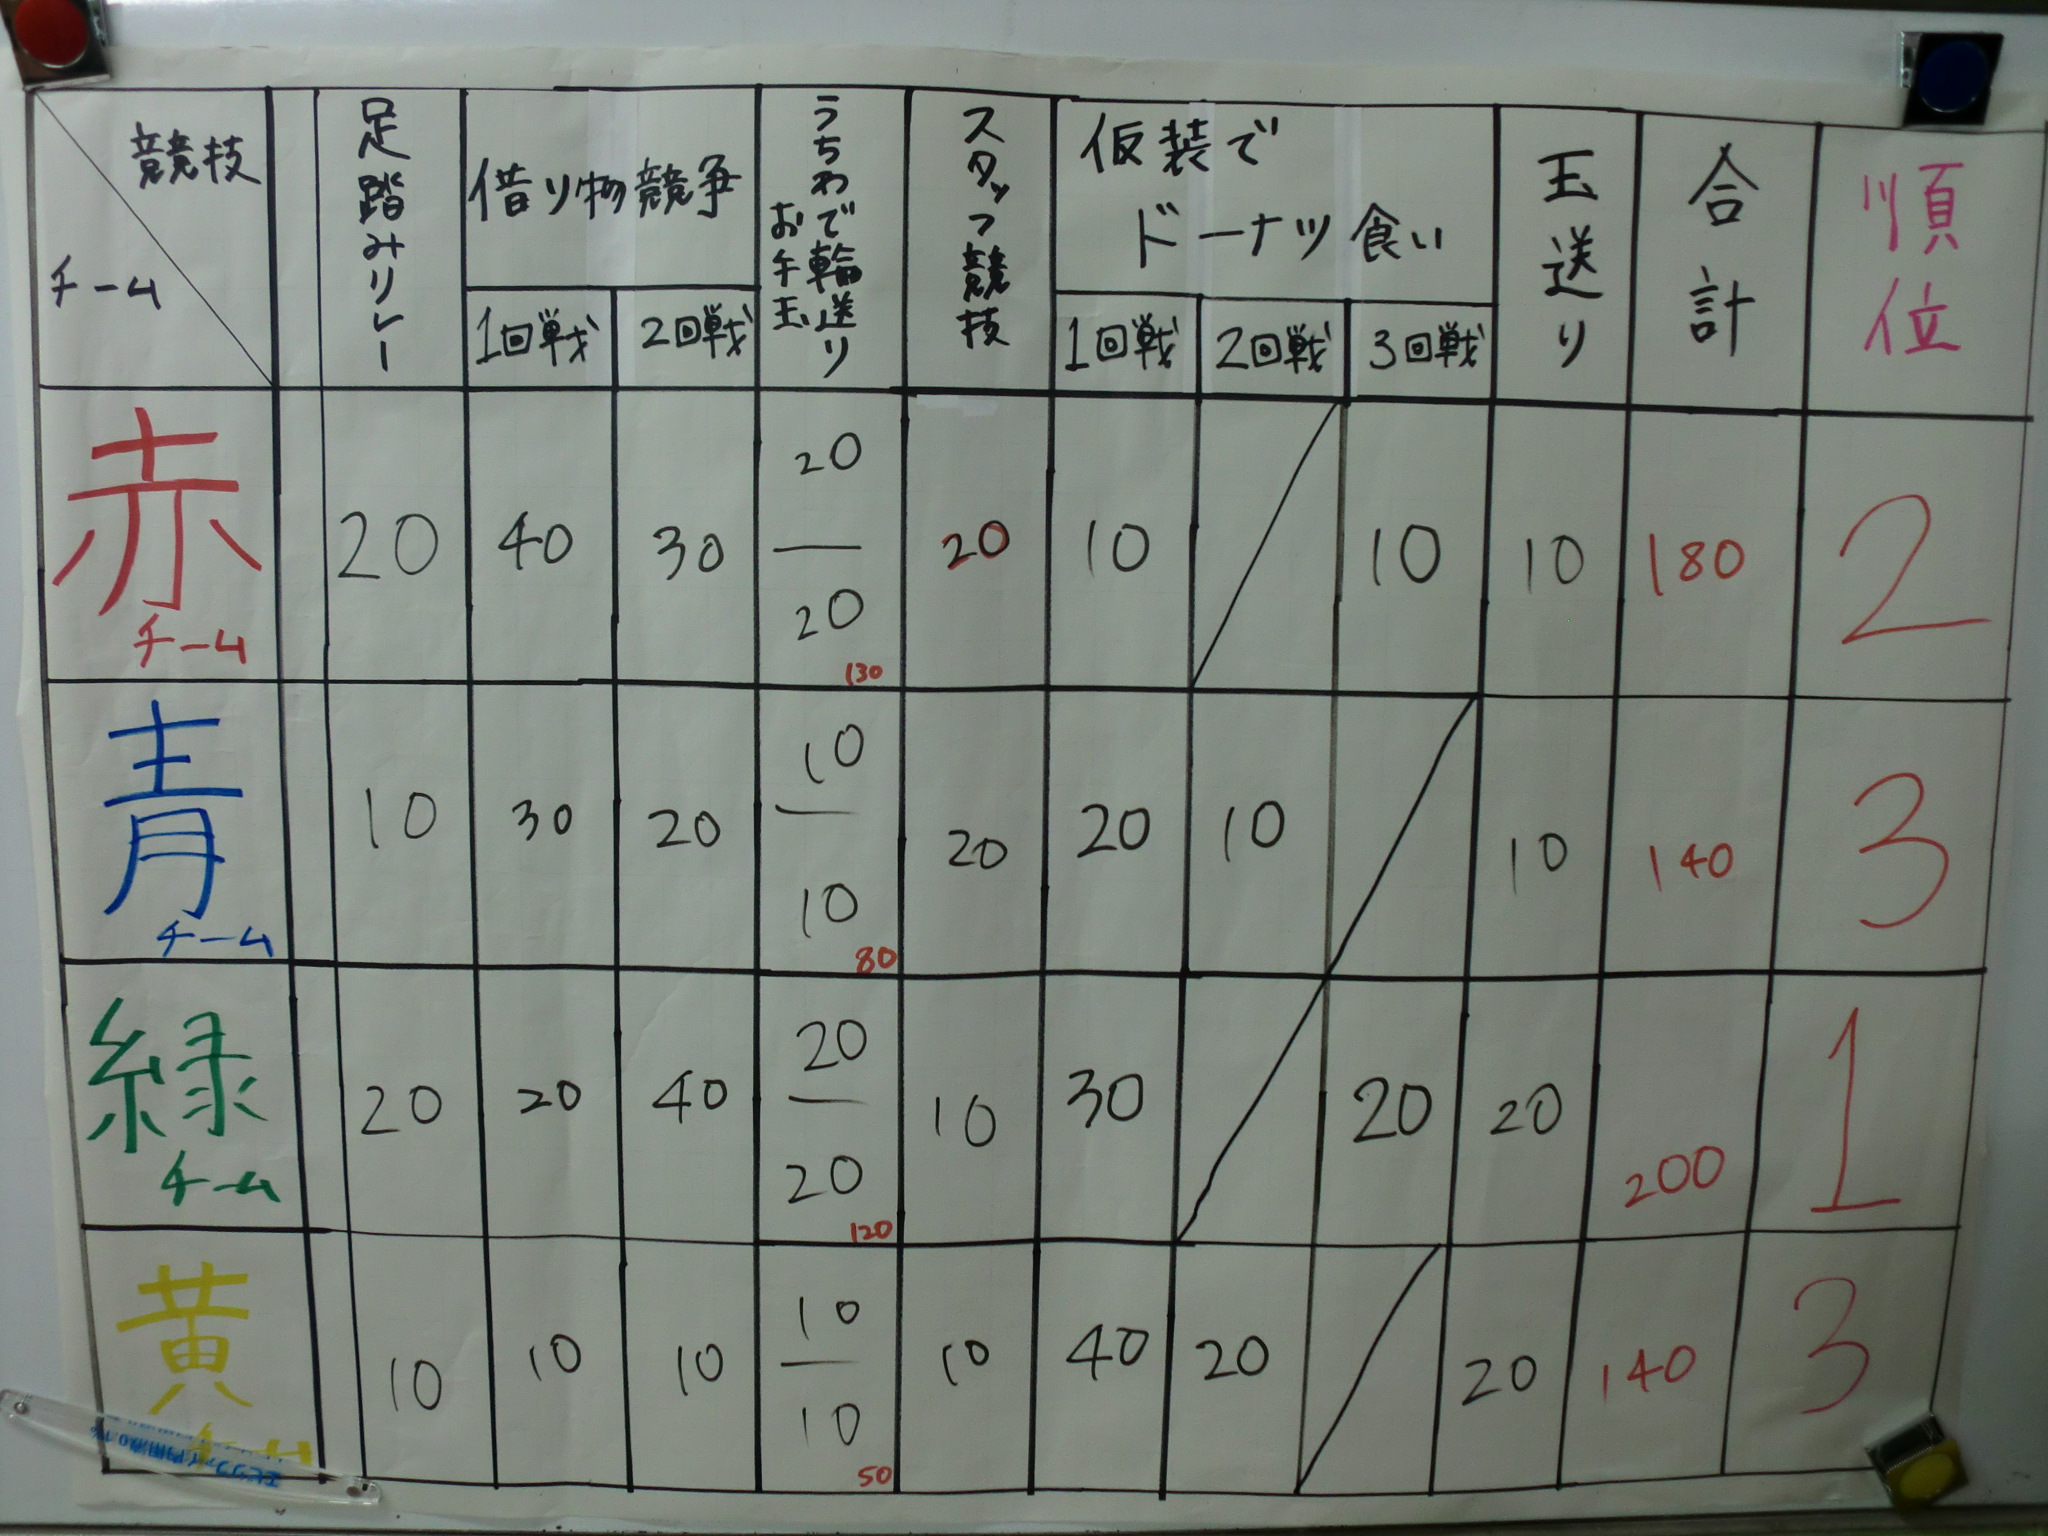 競技
チーム
足踏みリレー
借り物競争
1回戦
2回戦
うちわで輪送り
お手玉
スタッフ競技
仮装で
ドーナツ食い
1回戦
2回戦
3回戦
玉送り
合計
順位
赤
チーム
20
40
30
20
20
130
20
10
10
10
180
2
青
チーム
10
30
20
10
10
80
20
20
10
10
140
3
緑
チーム
20
20
40
20
20
120
10
30
20
20
200
1
黄
チーム
10
10
10
10
10
50
10
40
20
20
140
3
エビリファイ内用液0.1%